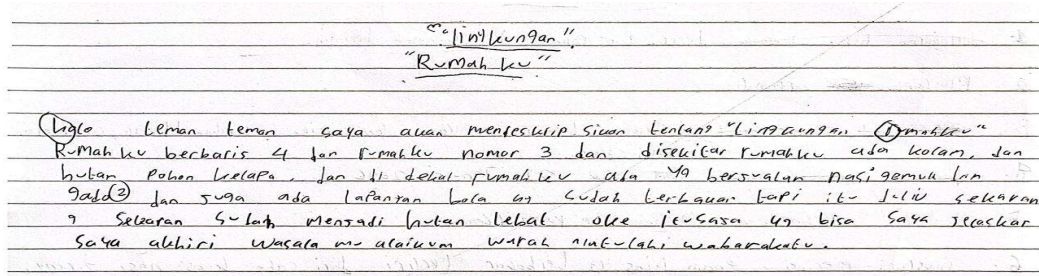 "lingkungan"
"Rumah ku"
Halo teman teman saya akan mendeskrip sikan tentang "Lingkungan Rumahku"
Rumah ku berbaris 4 dan rumahku nomor 3 dan disekitar rumahku ada kolam, dan
hutan Pohon kelapa, dan di dekat rumahku ada yg berjualan nasi gemuk dan
gado2 dan juga ada lapangan bola yg sudah terbakar tapi itu dulu sekaran
g sekaran sudah menjadi hutan lebat oke itusaja yg bisa saya jelaskan
saya akhiri wasala mu alaikum warah matulahi wabarakatu.